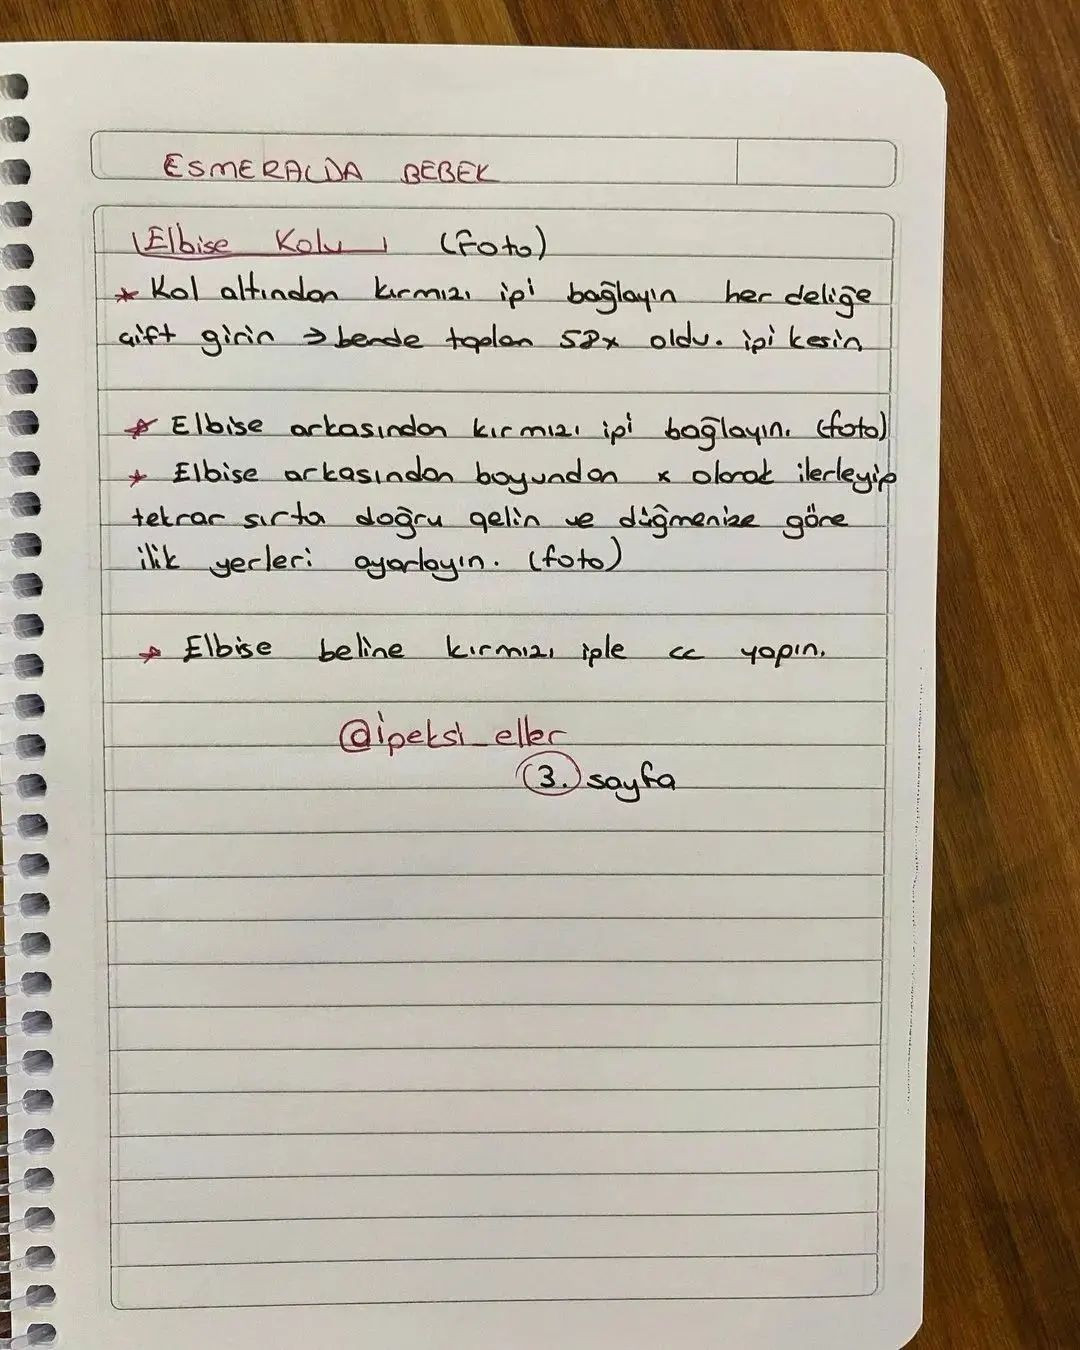 ESMERALDA BEBEK
Elbise Kolu (Foto)
* Kol altından kırmızı ipi bağlayın her deliğe
çift girin → bende toplan 52x oldu. ipi kesin
* Elbise arkasından kırmızı ipi bağlayın. (foto)
* Elbise arkasından boyundan x olarak ilerleyip
tekrar sırta doğru gelin ve düğmenize göre
ilik yerleri ayarlayın. (foto)
* Elbise beline kırmızı iple cc yapın.
@ipeksi_eller
3. sayfa